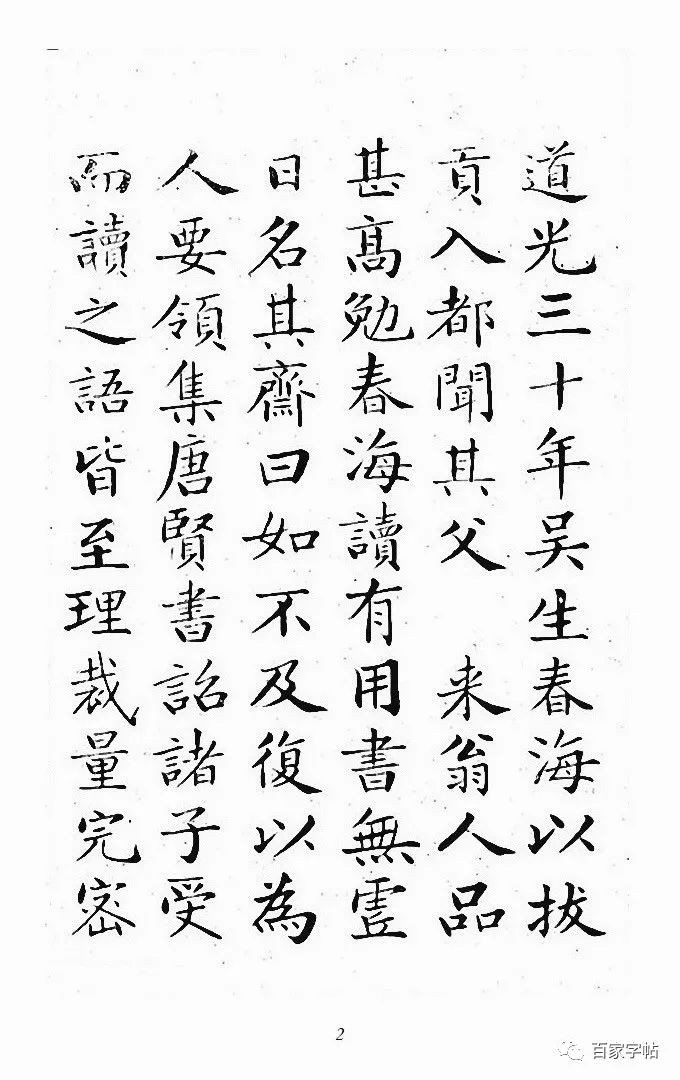 道光三十年吴生春海以拔
貢入都聞其父 来翁人品
甚髙勉春海讀有用書無虛
日名其齋曰如不及復以為
人要領集唐賢書詒諸子受
而讀之語皆至理裁量完密
2
百家字帖